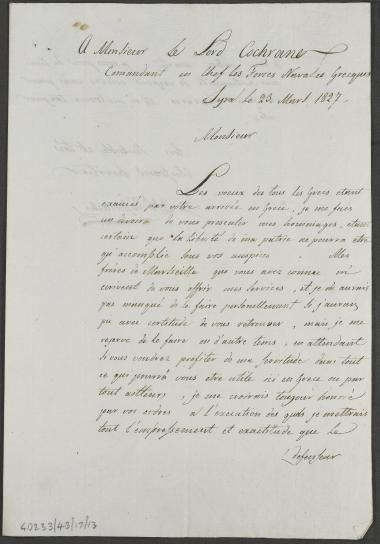 A Monsieur le Lord Cochrane
Comandant en Chef les Forces Navales Grecques
Syra le 23 Mars 1827.
Monsieur
Les voeux des tous les Grecs etant
exaucés par votre arrivée en Grèce, je me fais
un devoir de vous presenter mes homenages, etant
certain que la liberté de ma patrie ne pourra être
qu'accomplie sous vos auspices. Mes
frères de Marseille que vous avez connu
crivent de vous offrir mes services, et je n'aurais
pas manqué de le faire personellement si j'aurais
pu avec certitude de vous retrouver, mais je me
reserve de le faire en d'autre tems, en attendant
si vous voudrez profiter de ma servitude dans tout
ce que pourra vous etre utile ici en Grèce ou par
tout ailleurs, je me croirais toujour honoré
par vos ordres a l'execution des quels je mettrais
tout l'empressement et exactitude que le
40233/43/17/13